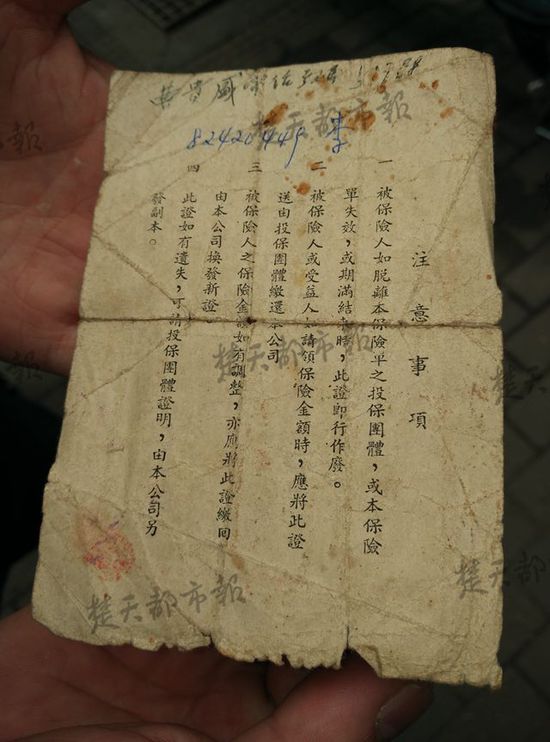 82420449 李
注意事項
一 被保險人如脫離本保險單之投保團體，或本保險
單失效，或期滿結 時，此證即行作廢。
二 被保險人或受益人 請領保險金額時，應將此證
送由投保團體繳還本公司
三 被保險人之保險金額如有調整，亦應將此證繳回
由本公司換發新證
四 此證如有遺失，可請投保團體證明，由本公司另
發副本。
楚天都市報
楚天都市報
楚天都市報
楚天都市報